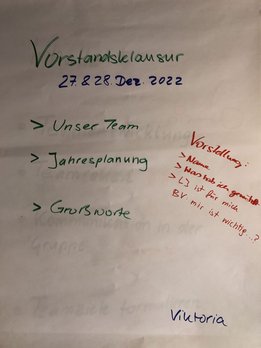 Vorstandsklausur
27. & 28. Dez. 2022
> Unser Team
> Jahresplanung
> Großworte
Vorstellung:
> Name
> Was hab ich
> LJ ist für mich
BV mir ist wichtig...?
Viktoria